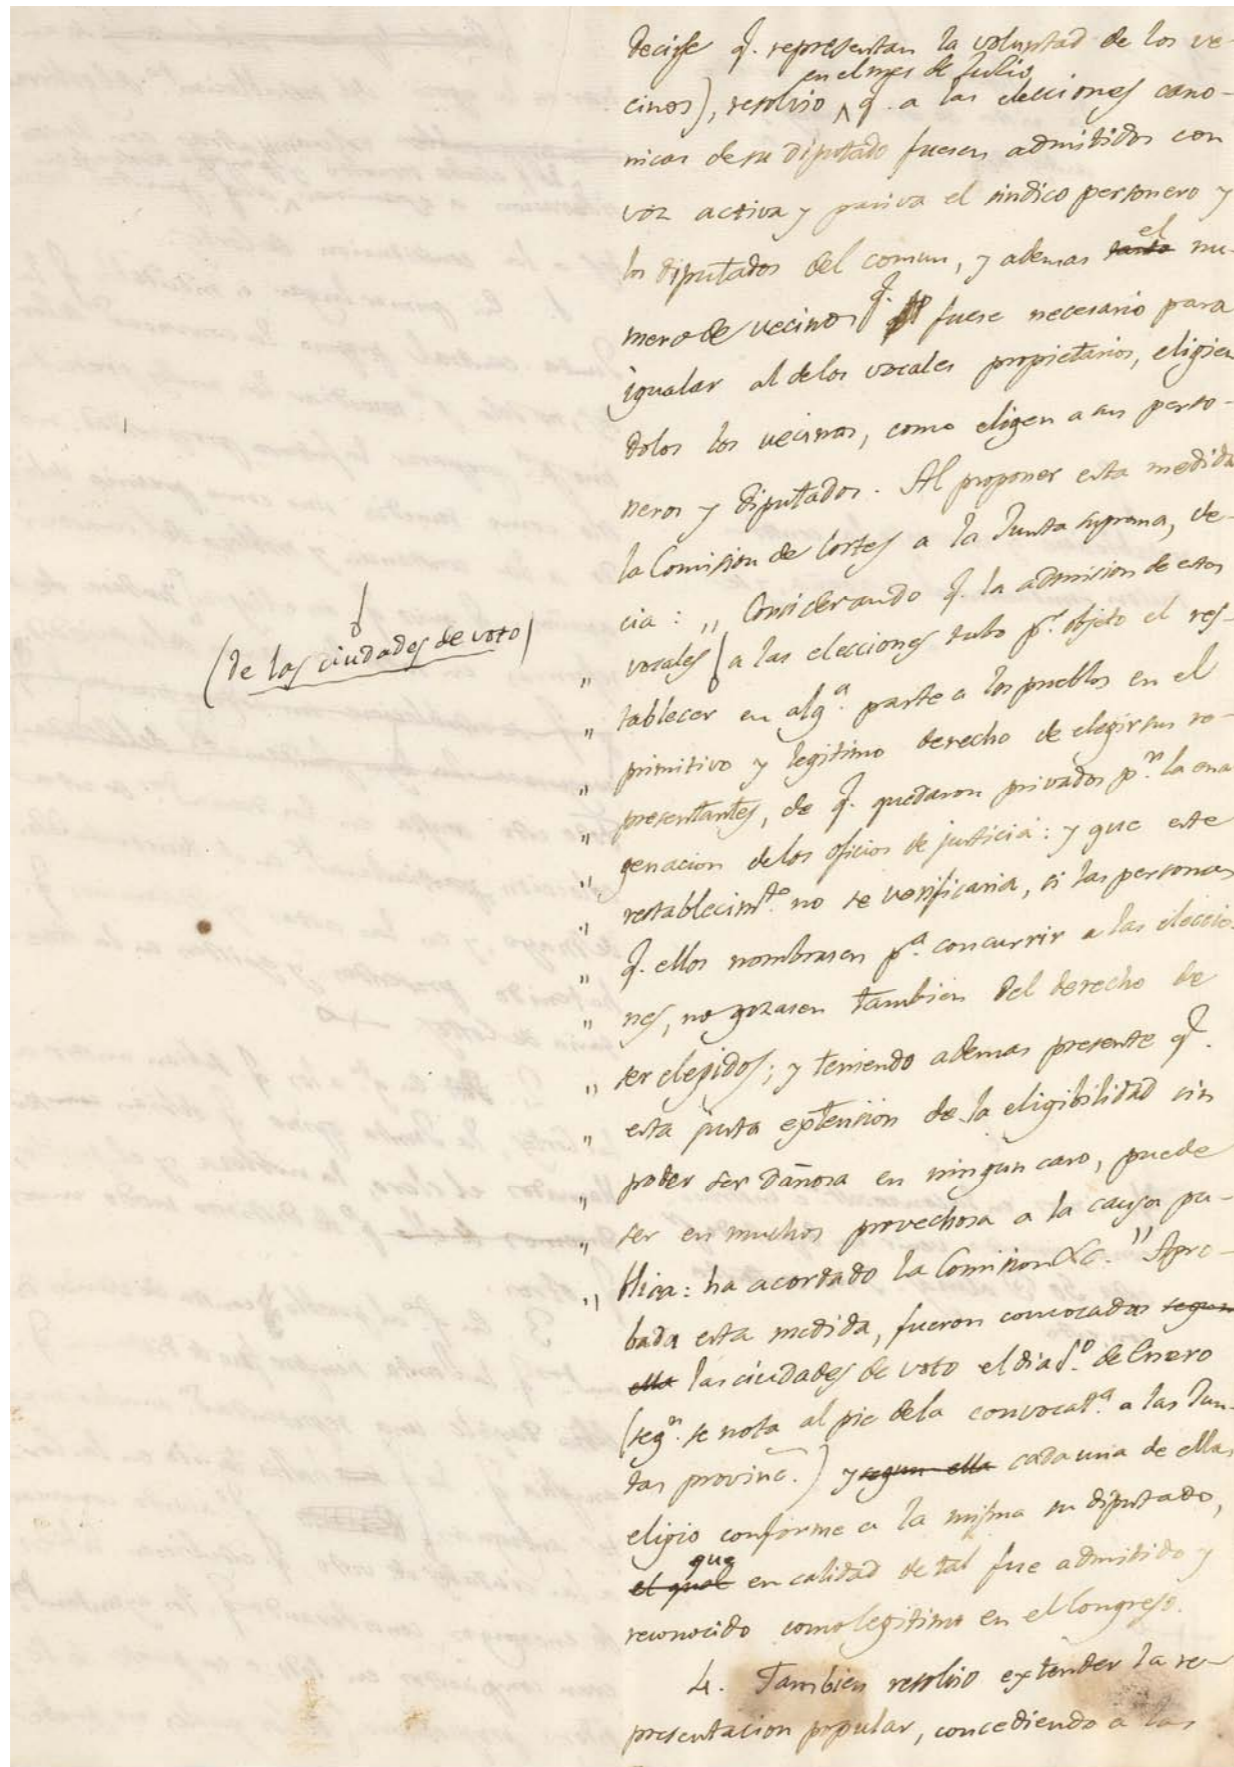 decirse q. representan la voluntad de los ve-
en el mes de Julio
cinos), resolvio ^ q. a las elecciones cano-
nicas de su diputado fuesen admitidos con
voz activa y pasiva el sindico personero y
el
los diputados del comun, y ademas tanto nu-
mero de vecinos q. fuese necesario para
igualar al de los vocales propietarios, eligien
dolos los vecinos, como eligen a sus perso-
neros y diputados. Al proponer esta medida
la Comision de Cortes a la Junta suprema, de-
cia: ,, Considerando q. la admision de estos
(de las ciudades de voto)
,, vocales a las elecciones tubo pr. objeto el res-
,, tablecer en algª. parte a los pueblos en el
,, primitivo y legitimo derecho de elegir sus re-
,, presentantes, de q. quedaron privados pr. la ena
,, genacion de los oficios de justicia: y que este
,, restablecimto. no se verificaria, si las personas
,, q. ellos nombrasen pª. concurrir a las eleccio-
,, nes, no gozasen tambien del derecho de
,, ser elegidos; y teniendo ademas presente q.
,, esta justa extension de la eligibilidad sin
,, poder ser dañosa en ningun caso, puede
,, ser en muchos provechosa a la causa pu-
,, blica: ha acordado la Comision &c." Apro-
bada esta medida, fueron convocadas segun
ella las ciudades de voto el dia 1º. de Enero
(segn. se nota al pie de la convocatª. a las Jun-
tas provinc.) y segun ella cada una de ellas
eligio conforme a la misma su diputado,
que
el qual en calidad de tal fue admitido y
reconocido como legitimo en el Congreso.
4. Tambien resolvio extender la re-
presentacion popular, concediendo a las